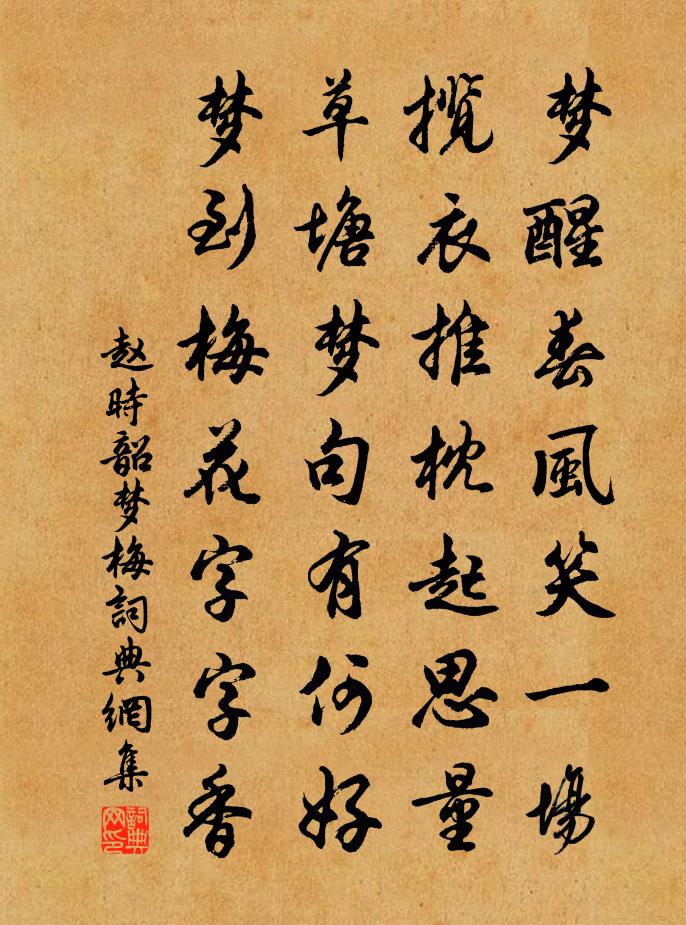 梦醒春風笑一場
揽衣推枕起思量
草塘梦句有何好
梦到梅花字字香
赵時韶梦梅詞典網集
詞典
网印